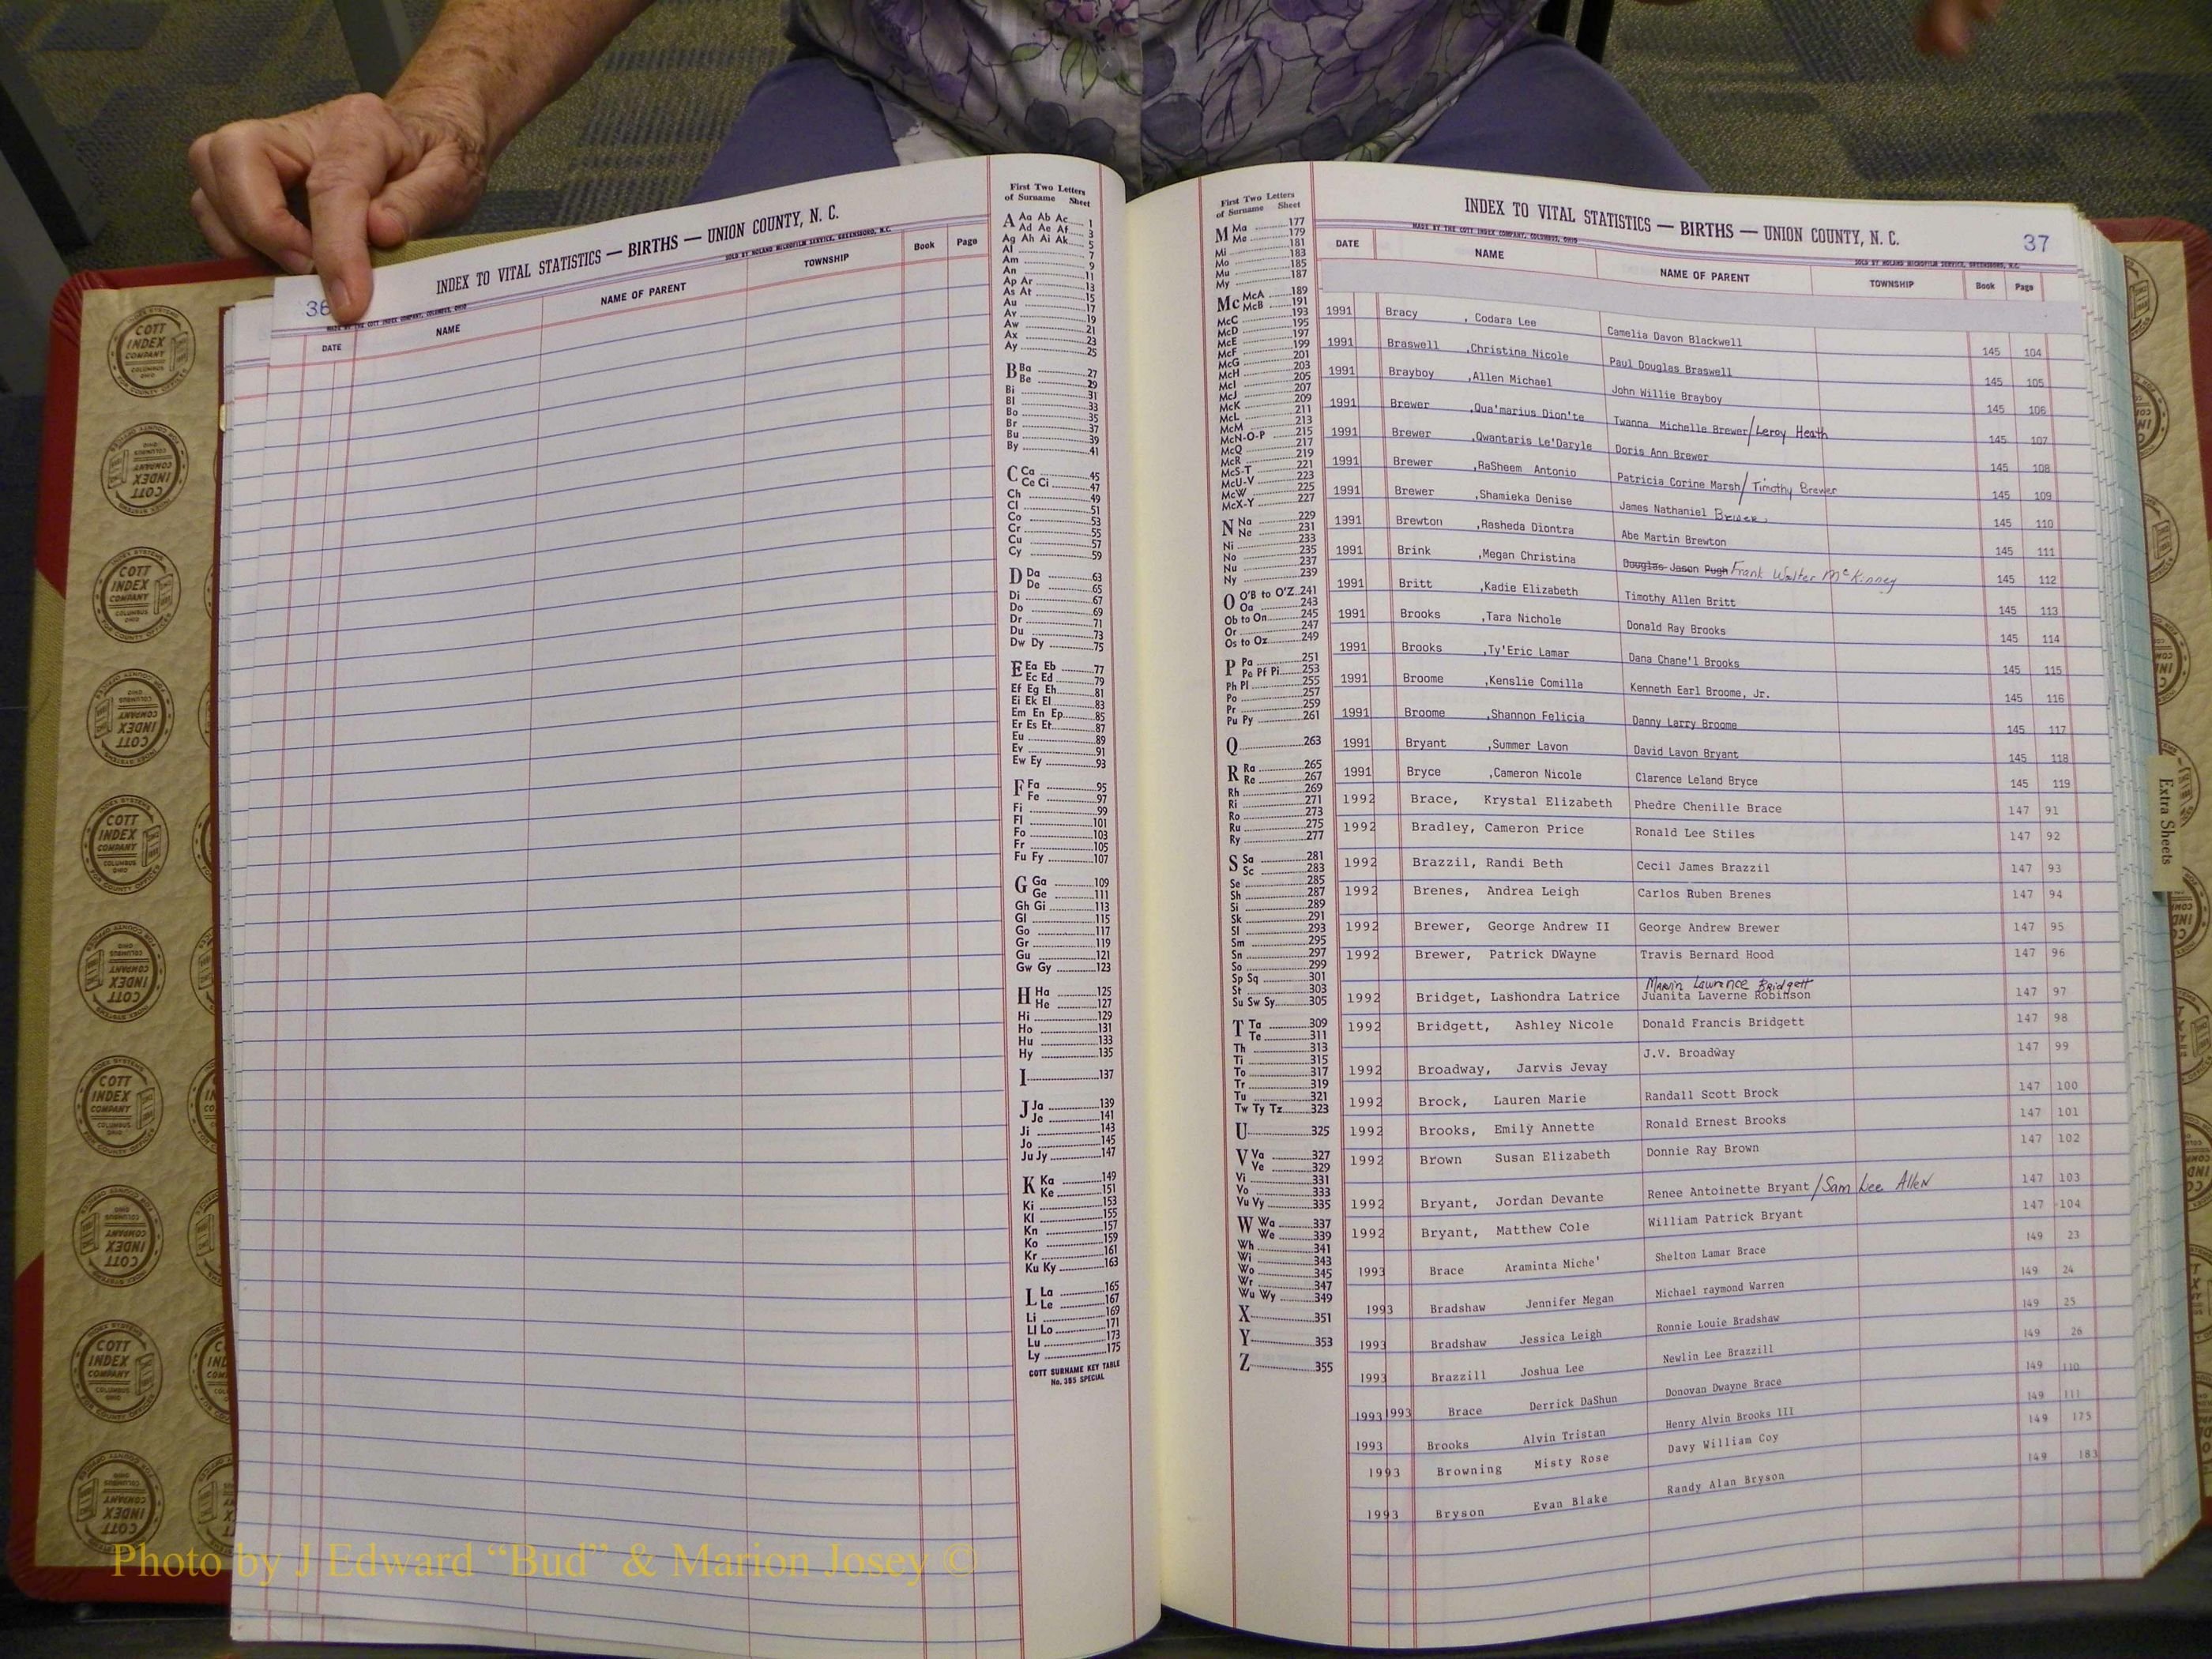 36
INDEX TO VITAL STATISTICS — BIRTHS — UNION COUNTY, N. C.
MADE BY THE COTT INDEX COMPANY, COLUMBUS, OHIO
SOLD BY NOLAND MICROFILM SERVICE, GREENSBORO, N.C.
DATE NAME NAME OF PARENT TOWNSHIP Book Page
First Two Letters
of Surname Sheet
A Aa Ab Ac 1
Ad Ae Af 3
Ag Ah Ai Ak 5
Al 7
Am 9
An 11
Ap Ar 13
As At 15
Au 17
Av 19
Aw 21
Ax 23
Ay 25
B Ba 27
Be 29
Bi 31
Bl 33
Bo 35
Br 37
Bu 39
By 41
C Ca 45
Ce Ci 47
Ch 49
Cl 51
Co 53
Cr 55
Cu 57
Cy 59
D Da 63
De 65
Di 67
Do 69
Dr 71
Du 73
Dw Dy 75
E Ea Eb 77
Ec Ed 79
Ef Eg Eh 81
Ei Ek El 83
Em En Ep 85
Er Es Et 87
Eu 89
Ev 91
Ew Ey 93
F Fa 95
Fe 97
Fi 99
Fl 101
Fo 103
Fr 105
Fu Fy 107
G Ga 109
Ge 111
Gh Gi 113
Gl 115
Go 117
Gr 119
Gu 121
Gw Gy 123
H Ha 125
He 127
Hi 129
Ho 131
Hu 133
Hy 135
I 137
J Ja 139
Je 141
Ji 143
Jo 145
Ju Jy 147
K Ka 149
Ke 151
Ki 153
Kl 155
Kn 157
Ko 159
Kr 161
Ku Ky 163
L La 165
Le 167
Li 169
Ll Lo 171
Lu 173
Ly 175
COTT SURNAME KEY TABLE
No. 365 SPECIAL
First Two Letters
of Surname Sheet
M Ma 177
Me 179
Mi 181
Mo 183
Mu 185
My 187
Mc McA 189
McB 191
McC 193
McD 195
McE 197
McF 199
McG 201
McH 203
McI 205
McJ 207
McK 209
McL 211
McM 213
McN-O-P 215
McQ 217
McR 219
McS-T 221
McU-V 223
McW 225
McX-Y 227
N Na 229
Ne 231
Ni 233
No 235
Nu 237
Ny 239
O O'B to O'Z 241
Oa 243
Ob to On 245
Or 247
Os to Oz 249
P Pa 251
Pe Pf Pi 253
Ph Pl 255
Po 257
Pr 259
Pu Py 261
Q 263
R Ra 265
Re 267
Rh 269
Ri 271
Ro 273
Ru 275
Ry 277
S Sa 281
Sc 283
Se 285
Sh 287
Si 289
Sk 291
Sl 293
Sm 295
Sn 297
So 299
Sp Sq 301
St 303
Su Sw Sy 305
T Ta 309
Te 311
Th 313
Ti 315
To 317
Tr 319
Tu 321
Tw Ty Tz 323
U 325
V Va 327
Ve 329
Vi 331
Vo 333
Vu Vy 335
W Wa 337
We 339
Wh 341
Wi 343
Wo 345
Wr 347
Wu Wy 349
X 351
Y 353
Z 355
INDEX TO VITAL STATISTICS — BIRTHS — UNION COUNTY, N. C.
37
MADE BY THE COTT INDEX COMPANY, COLUMBUS, OHIO
SOLD BY NOLAND MICROFILM SERVICE, GREENSBORO, N.C.
DATE NAME NAME OF PARENT TOWNSHIP Book Page
1991 Bracy , Codara Lee Camelia Davon Blackwell 145 104
1991 Braswell ,Christina Nicole Paul Douglas Braswell 145 105
1991 Brayboy ,Allen Michael John Willie Brayboy 145 106
1991 Brewer ,Qua'marius Dion'te Twanna Michelle Brewer/Leroy Heath 145 107
1991 Brewer ,Qwantaris Le'Daryle Doris Ann Brewer 145 108
1991 Brewer ,RaSheem Antonio Patricia Corine Marsh/Timothy Brewer 145 109
1991 Brewer ,Shamieka Denise James Nathaniel Brewer 145 110
1991 Brewton ,Rasheda Diontra Abe Martin Brewton 145 111
1991 Brink ,Megan Christina Douglas Jason Pugh Frank Walter McKinney 145 112
1991 Britt ,Kadie Elizabeth Timothy Allen Britt 145 113
1991 Brooks ,Tara Nichole Donald Ray Brooks 145 114
1991 Brooks ,Ty'Eric Lamar Dana Chane'l Brooks 145 115
1991 Broome ,Kenslie Comilla Kenneth Earl Broome, Jr. 145 116
1991 Broome ,Shannon Felicia Danny Larry Broome 145 117
1991 Bryant ,Summer Lavon David Lavon Bryant 145 118
1991 Bryce ,Cameron Nicole Clarence Leland Bryce 145 119
1992 Brace, Krystal Elizabeth Phedre Chenille Brace 147 91
1992 Bradley, Cameron Price Ronald Lee Stiles 147 92
1992 Brazzil, Randi Beth Cecil James Brazzil 147 93
1992 Brenes, Andrea Leigh Carlos Ruben Brenes 147 94
1992 Brewer, George Andrew II George Andrew Brewer 147 95
1992 Brewer, Patrick DWayne Travis Bernard Hood 147 96
Marvin Lawrence Bridgett
1992 Bridget, Lashondra Latrice Juanita Laverne Robinson 147 97
1992 Bridgett, Ashley Nicole Donald Francis Bridgett 147 98
1992 Broadway, Jarvis Jevay J.V. Broadway 147 99
1992 Brock, Lauren Marie Randall Scott Brock 147 100
1992 Brooks, Emily Annette Ronald Ernest Brooks 147 101
1992 Brown Susan Elizabeth Donnie Ray Brown 147 102
1992 Bryant, Jordan Devante Renee Antoinette Bryant/Sam Lee Allen 147 103
1992 Bryant, Matthew Cole William Patrick Bryant 147 104
1993 Brace Araminta Miche' Shelton Lamar Brace 149 23
1993 Bradshaw Jennifer Megan Michael raymond Warren 149 24
1993 Bradshaw Jessica Leigh Ronnie Louie Bradshaw 149 25
1993 Brazzill Joshua Lee Newlin Lee Brazzill 149 26
1993 1993 Brace Derrick DaShun Donovan Dwayne Brace 149 110
1993 Brooks Alvin Tristan Henry Alvin Brooks III 149 111
1993 Browning Misty Rose Davy William Coy 149 175
1993 Bryson Evan Blake Randy Alan Bryson 149 183
Extra Sheets
COTT INDEX COMPANY COLUMBUS OHIO
INDEX SYSTEMS FOR COUNTY OFFICES
Photo by J Edward “Bud” & Marion Josey ©